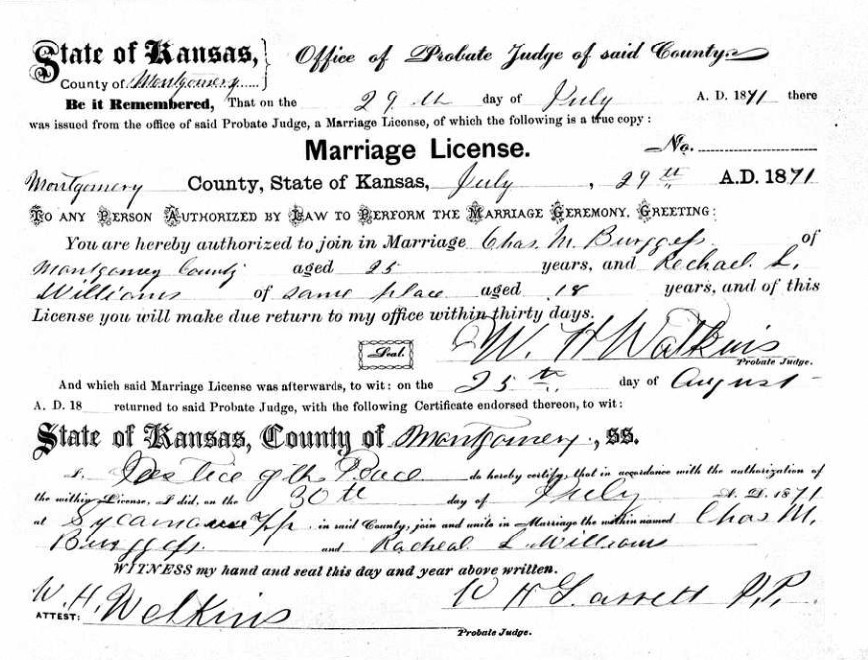 State of Kansas, } Office of Probate Judge of said County.
County of Montgomery
Be it Remembered, That on the 29th day of July A. D. 1871 there
was issued from the office of said Probate Judge, a Marriage License, of which the following is a true copy:
Marriage License. No.
Montgomery County, State of Kansas, July, 29th A.D. 1871
TO ANY PERSON AUTHORIZED BY LAW TO PERFORM THE MARRIAGE CEREMONY, GREETING:
You are hereby authorized to join in Marriage Chas. M. Burggess. of
Montgomery County aged 25 years, and Rechael. L.
Williams of same place aged 18 years, and of this
License you will make due return to my office within thirty days.
Seal. W. H Watkins
Probate Judge.
And which said Marriage License was afterwards, to wit: on the 25th day of August
A. D. 18 returned to said Probate Judge, with the following Certificate endorsed thereon, to wit:
State of Kansas, County of Montgomery, ss.
I, Jastice of the Peace do hereby certify, that in accordance with the authorization of
the within License, I did, on the 30th day of July A. D. 1871
at Sycamore Tp in said County, join and unite in Marriage the within named Chas M.
Burggess. and Racheal L. Williams
WITNESS my hand and seal this day and year above written.
W. H. Watkins W H Garrett J. P.
ATTEST:
Probate Judge.